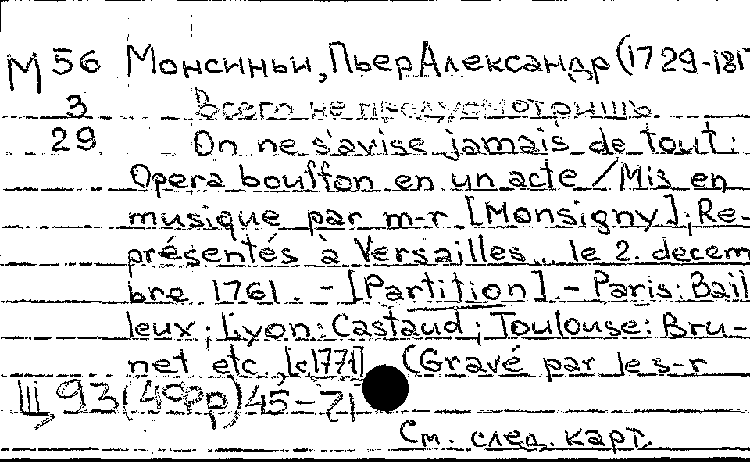 М 56 Монсиньи, Пьер Александр (1729-181
3 Всего не предусмотришь
29 On ne s'avise jamais de tout:
Opera bouffon en un acte / Mis en
musique par m-r [Monsigny]; Re-
présentés à Versailles... le 2. decem
bre 1761. - [Partition]. - Paris: Bail
leux; Lyon: Castaud; Toulouse: Bru-
net etc, [c 1771] (Gravé par le s-r
III 93 (49 р) 45-71
См. след. карт.